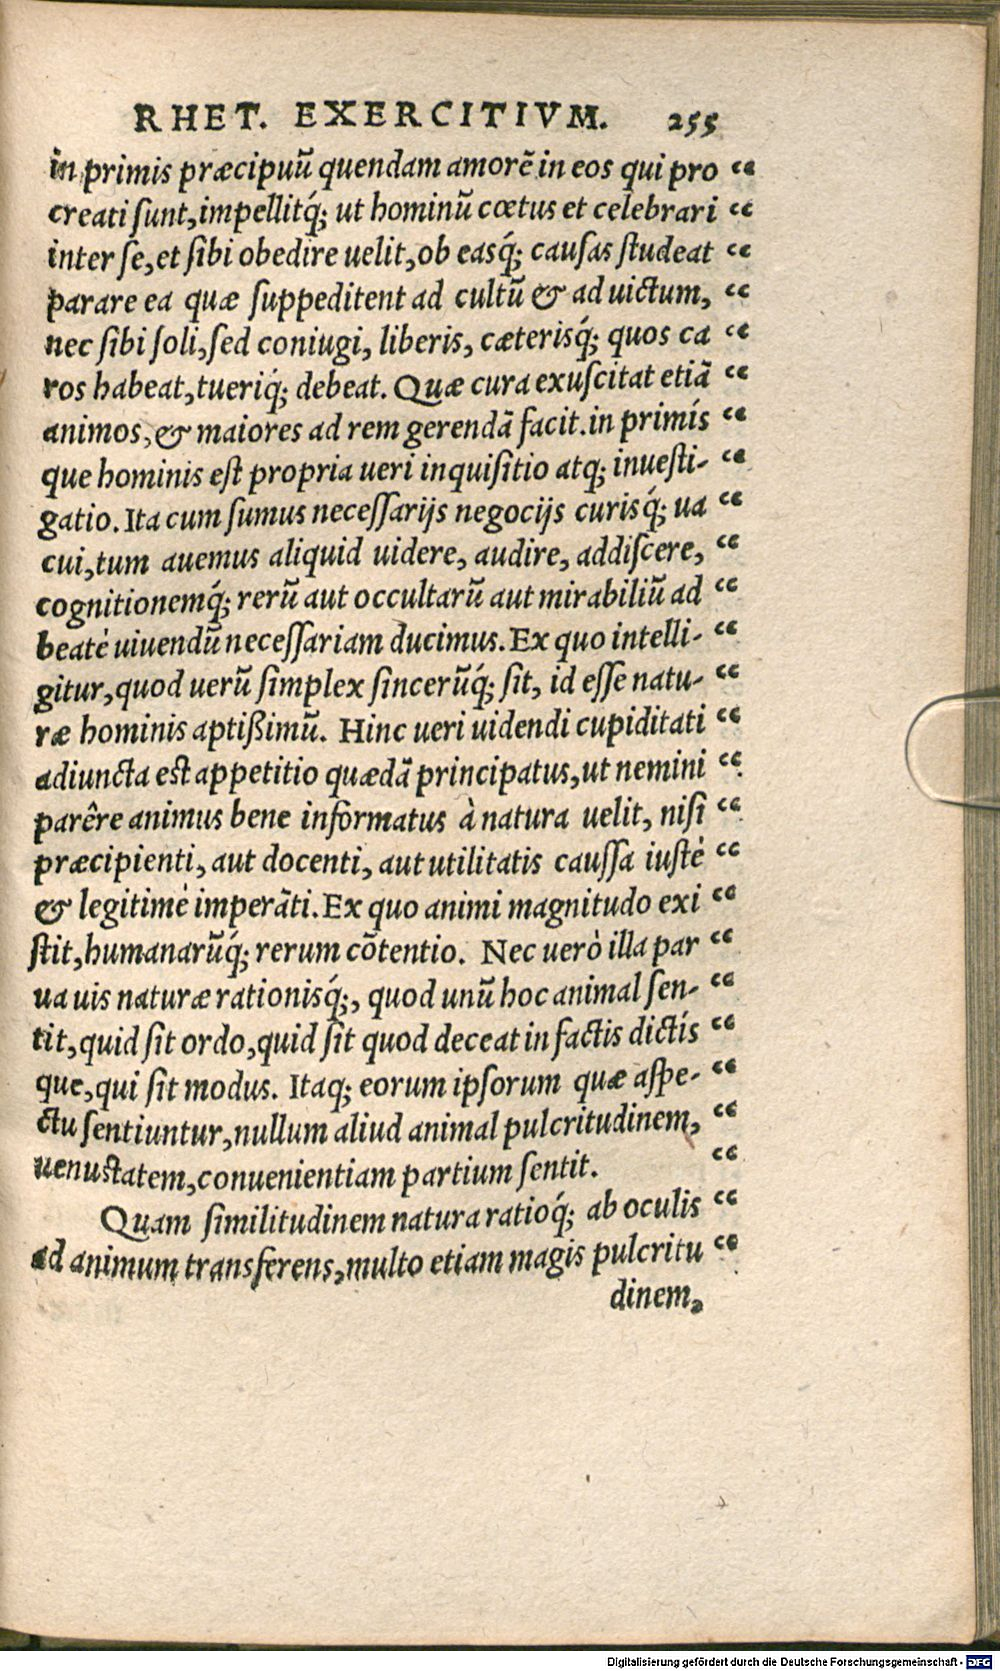 RHET. EXERCITIVM. 255
in primis præcipuũ quendam amorẽ in eos qui pro “
creati ſunt, impellitq́; ut hominũ cœtus et celebrari “
inter ſe, et ſibi obedire uelit, ob easq́; cauſas ſtudeat “
parare ea quæ ſuppeditent ad cultũ & ad uictum, “
nec ſibi ſoli, ſed coniugi, liberis, cæterisq́; quos ca “
ros habeat, tueriq́; debeat. Quæ cura exuſcitat etiã “
animos, & maiores ad rem gerendã facit. in primís “
que hominis eſt propria ueri inquiſitio atq; inueſti- “
gatio. Ita cum ſumus neceſſarijs negocijs curisq́; ua “
cui, tum auemus aliquid uidere, audire, addiſcere, “
cognitionemq́; rerũ aut occultarũ aut mirabiliũ ad “
beatè uiuendũ neceſſariam ducimus. Ex quo intelli- “
gitur, quod uerũ ſimplex ſincerũq́; ſit, id eſſe natu- “
ræ hominis aptißimũ. Hinc ueri uidendi cupiditati “
adiuncta est appetitio quædã principatus, ut nemini “
parêre animus bene informatus à natura uelit, niſi “
præcipienti, aut docenti, aut utilitatis cauſſa iuſtè “
& legitimè imperãti. Ex quo animi magnitudo exi “
ſtit, humanarũq́; rerum cõtentio. Nec uerò illa par “
ua uis naturæ rationisq́;, quod unũ hoc animal ſen- “
tit, quid ſit ordo, quid ſit quod deceat in factis dictís “
que, qui ſit modus. Itaq; eorum ipſorum quæ aſpe- “
ctu ſentiuntur, nullum aliud animal pulcritudinem, “
uenustatem, conuenientiam partium ſentit. “
Quam ſimilitudinem natura ratioq́; ab oculis “
ad animum transferens, multo etiam magis pulcritu “
dinem,
Digitalisierung gefördert durch die Deutsche Forschungsgemeinschaft - DFG